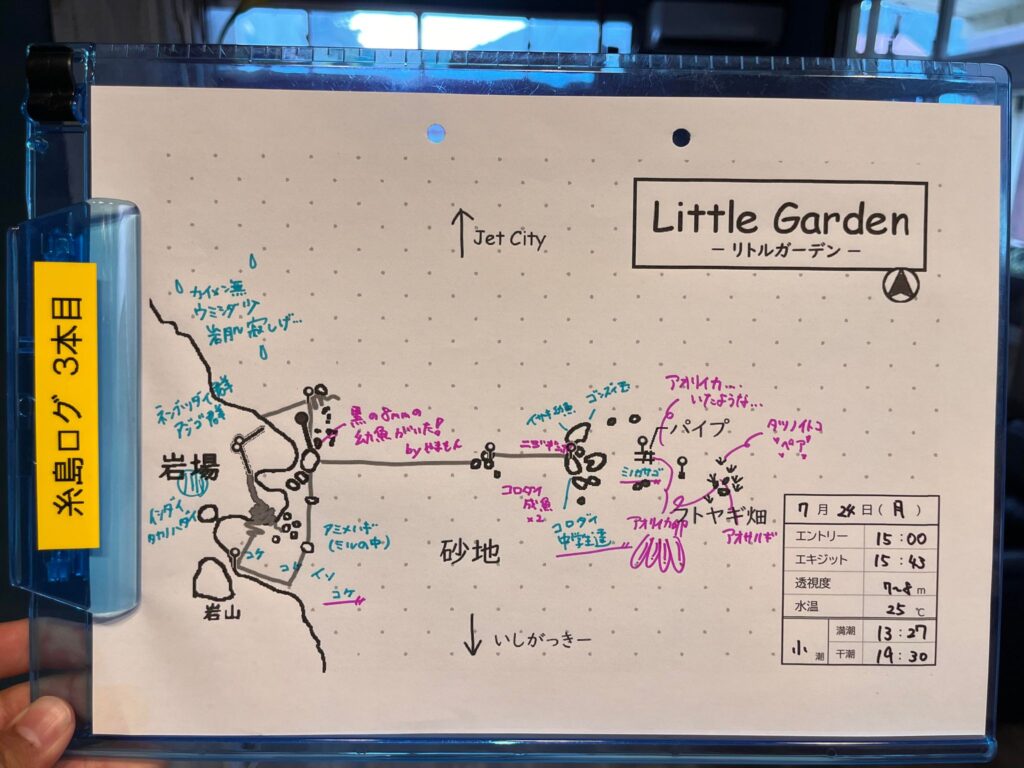 糸島ログ 3本目
Little Garden
－ リトルガーデン －
Jet City
カイメン無
ウミシダツツ
岩肌寂しげ…
ネンブツダイ群
アジゴ群
黒の8mmの
幼魚がいた!
byやまもん
岩場
イシダイ
タカノハダイ
コケ
コケ
イソ
コケ
アミメハギ
(ミルの中)
岩山
砂地
いしがっきー
イサキ幼魚
ゴンズイ玉
コロダイ
成魚
×2
コロダイ
中学生達
アオリイカ…
いたような…
パイプ
ミノカサゴ
タツノイトコ
ペア
フトヤギ畑
アオサハギ
アオリイカの卵
7月24日(月)
エントリー 15:00
エキジット 15:43
透視度 7~8m
水温 25℃
小潮 満潮 13:27
干潮 19:30